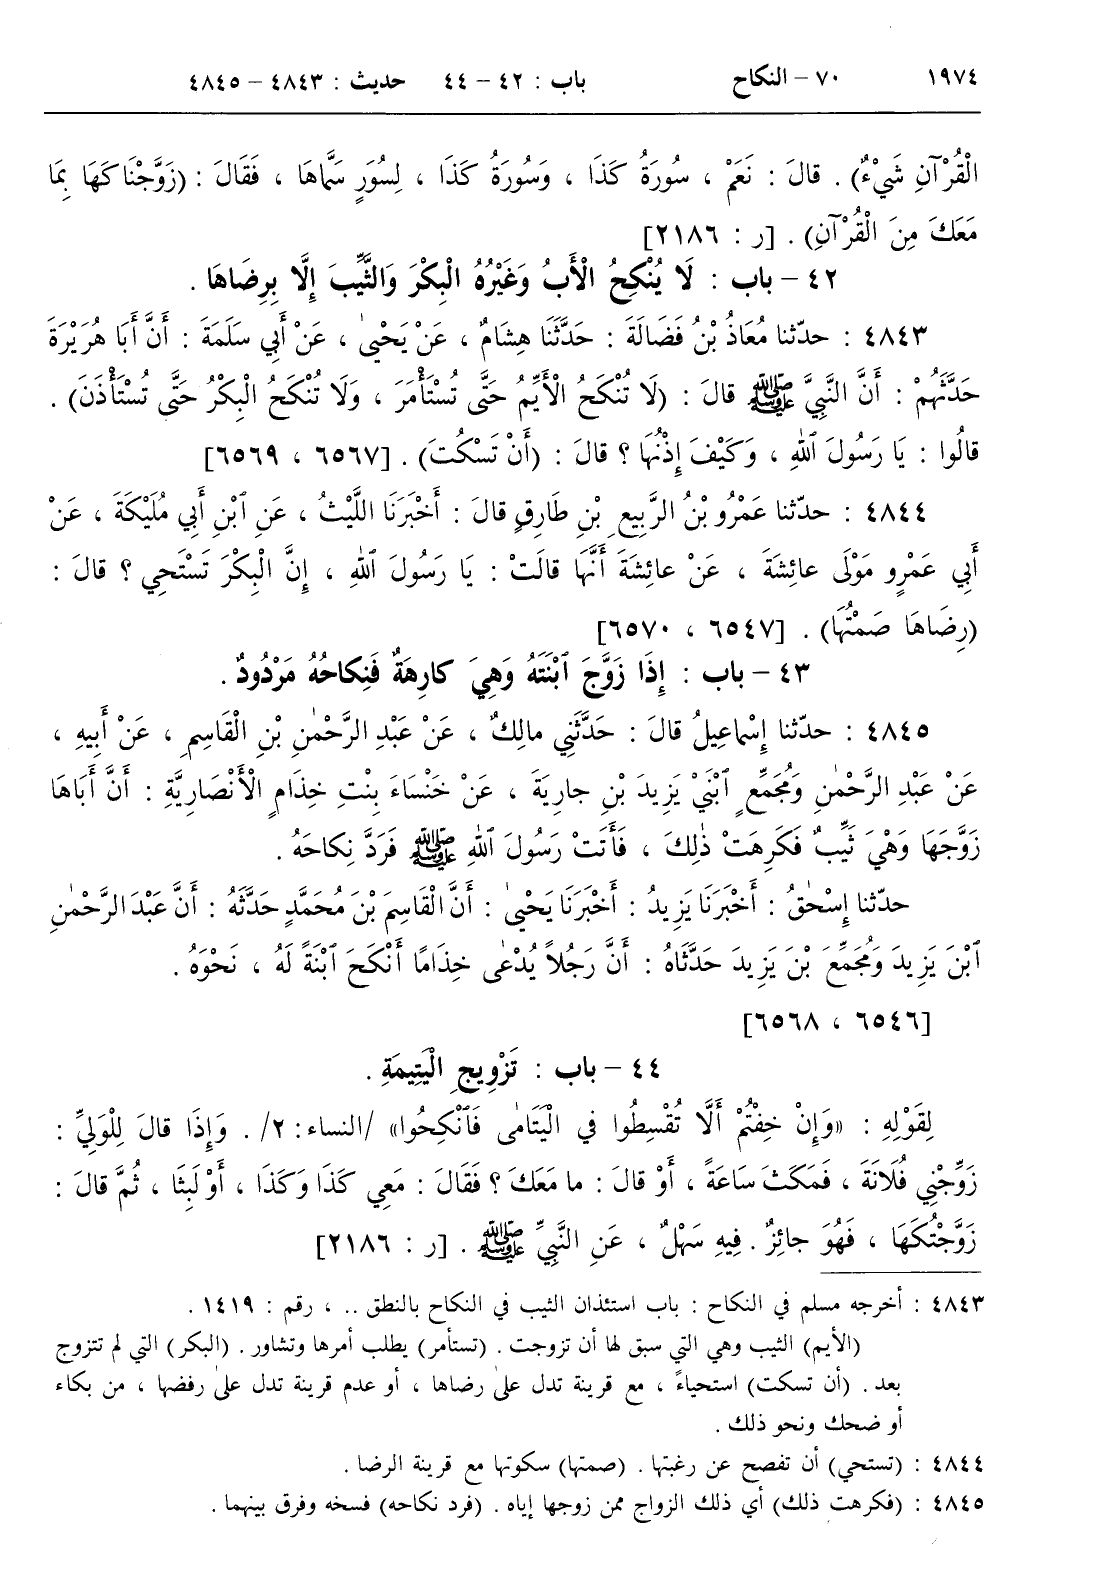 ١٩٧٤ ٧٠ – النكاح باب : ٤٢ – ٤٤ حديث : ٤٨٤٣ – ٤٨٤٥
الْقُرْآنِ شَيْءٌ) . قالَ : نَعَمْ ، سُورَةُ كَذَا ، وَسُورَةُ كَذَا ، لِسُوَرٍ سَمَّاهَا ، فَقَالَ : (زَوَّجْنَاكَهَا بِمَا
مَعَكَ مِنَ الْقُرْآنِ) . [ر : ٢١٨٦]
٤٢ – باب : لَا يُنْكِحُ الْأَبُ وَغَيْرُهُ الْبِكْرَ وَالثَّيِّبَ إِلَّا بِرِضَاهَا .
٤٨٤٣ : حدّثنا مُعَاذُ بْنُ فَضَالَةَ : حَدَّثَنَا هِشَامٌ ، عَنْ يَحْيىٰ ، عَنْ أَبِي سَلَمَةَ : أَنَّ أَبَا هُرَيْرَةَ
حَدَّثَهُمْ : أَنَّ النَّبِيَّ ﷺ قالَ : (لَا تُنْكَحُ الْأَيِّمُ حَتَّى تُسْتَأْمَرَ ، وَلَا تُنْكَحُ الْبِكْرُ حَتَّى تُسْتَأْذَنَ) .
قالُوا : يَا رَسُولَ ٱللهِ ، وَكَيْفَ إِذْنُهَا ؟ قالَ : (أَنْ تَسْكُتَ) . [٦٥٦٧ ، ٦٥٦٩]
٤٨٤٤ : حدّثنا عَمْرُو بْنُ الرَّبِيعِ بْنِ طَارِقٍ قالَ : أَخْبَرَنَا اللَّيْثُ ، عَنِ ٱبْنِ أَبِي مُلَيْكَةَ ، عَنْ
أَبِي عَمْرٍو مَوْلَى عائِشَةَ ، عَنْ عائِشَةَ أَنَّهَا قالَتْ : يَا رَسُولَ ٱللهِ ، إِنَّ الْبِكْرَ تَسْتَحِي ؟ قالَ :
(رِضَاهَا صَمْتُهَا) . [٦٥٤٧ ، ٦٥٧٠]
٤٣ – باب : إِذَا زَوَّجَ ٱبْنَتَهُ وَهِيَ كارِهَةٌ فَنِكاحُهُ مَرْدُودٌ .
٤٨٤٥ : حدّثنا إِسْماعِيلُ قالَ : حَدَّثَنِي مالِكٌ ، عَنْ عَبْدِ الرَّحْمٰنِ بْنِ الْقَاسِمِ ، عَنْ أَبِيهِ ،
عَنْ عَبْدِ الرَّحْمٰنِ وَمُجَمِّعٍ ٱبْنَيْ يَزِيدَ بْنِ جارِيَةَ ، عَنْ خَنْسَاءَ بِنْتِ خِذَامٍ الْأَنْصَارِيَّةِ : أَنَّ أَبَاهَا
زَوَّجَهَا وَهْيَ ثَيِّبٌ فَكَرِهَتْ ذٰلِكَ ، فَأَتَتْ رَسُولَ ٱللهِ ﷺ فَرَدَّ نِكاحَهُ .
حدّثنا إِسْحٰقُ : أَخْبَرَنَا يَزِيدُ : أَخْبَرَنَا يَحْيىٰ : أَنَّ الْقَاسِمَ بْنَ مُحَمَّدٍ حَدَّثَهُ : أَنَّ عَبْدَ الرَّحْمٰنِ
ٱبْنَ يَزِيدَ وَمُجَمِّعَ بْنَ يَزِيدَ حَدَّثَاهُ : أَنَّ رَجُلاً يُدْعٰى خِذَامًا أَنْكَحَ ٱبْنَةً لَهُ ، نَحْوَهُ .
[٦٥٤٦ ، ٦٥٦٨]
٤٤ – باب : تَزْوِيجِ الْيَتِيمَةِ .
لِقَوْلِهِ : «وَإِنْ خِفْتُمْ أَلَّا تُقْسِطُوا في الْيَتَامٰى فَٱنْكِحُوا» /النساء: ٢/ . وَإِذَا قالَ لِلْوَلِيِّ :
زَوِّجْنِي فُلَانَةَ ، فَمَكَثَ سَاعَةً ، أَوْ قالَ : ما مَعَكَ ؟ فَقَالَ : مَعِي كَذَا وَكَذَا ، أَوْ لَبِثَا ، ثُمَّ قالَ :
زَوَّجْتُكَهَا ، فَهُوَ جائِزٌ . فِيهِ سَهْلٌ ، عَنِ النَّبِيِّ ﷺ . [ر : ٢١٨٦]
٤٨٤٣ : أخرجه مسلم في النكاح : باب استئذان الثيب في النكاح بالنطق .. ، رقم : ١٤١٩ .
(الأيم) الثيب وهي التي سبق لها أن تزوجت . (تستأمر) يطلب أمرها وتشاور . (البكر) التي لم تتزوج
بعد . (أن تسكت) استحياءً ، مع قرينة تدل علىٰ رضاها ، أو عدم قرينة تدل علىٰ رفضها ، من بكاء
أو ضحك ونحو ذلك .
٤٨٤٤ : (تستحي) أن تفصح عن رغبتها . (صمتها) سكوتها مع قرينة الرضا .
٤٨٤٥ : (فكرهت ذلك) أي ذلك الزواج ممن زوجها إياه . (فرد نكاحه) فسخه وفرق بينهما .